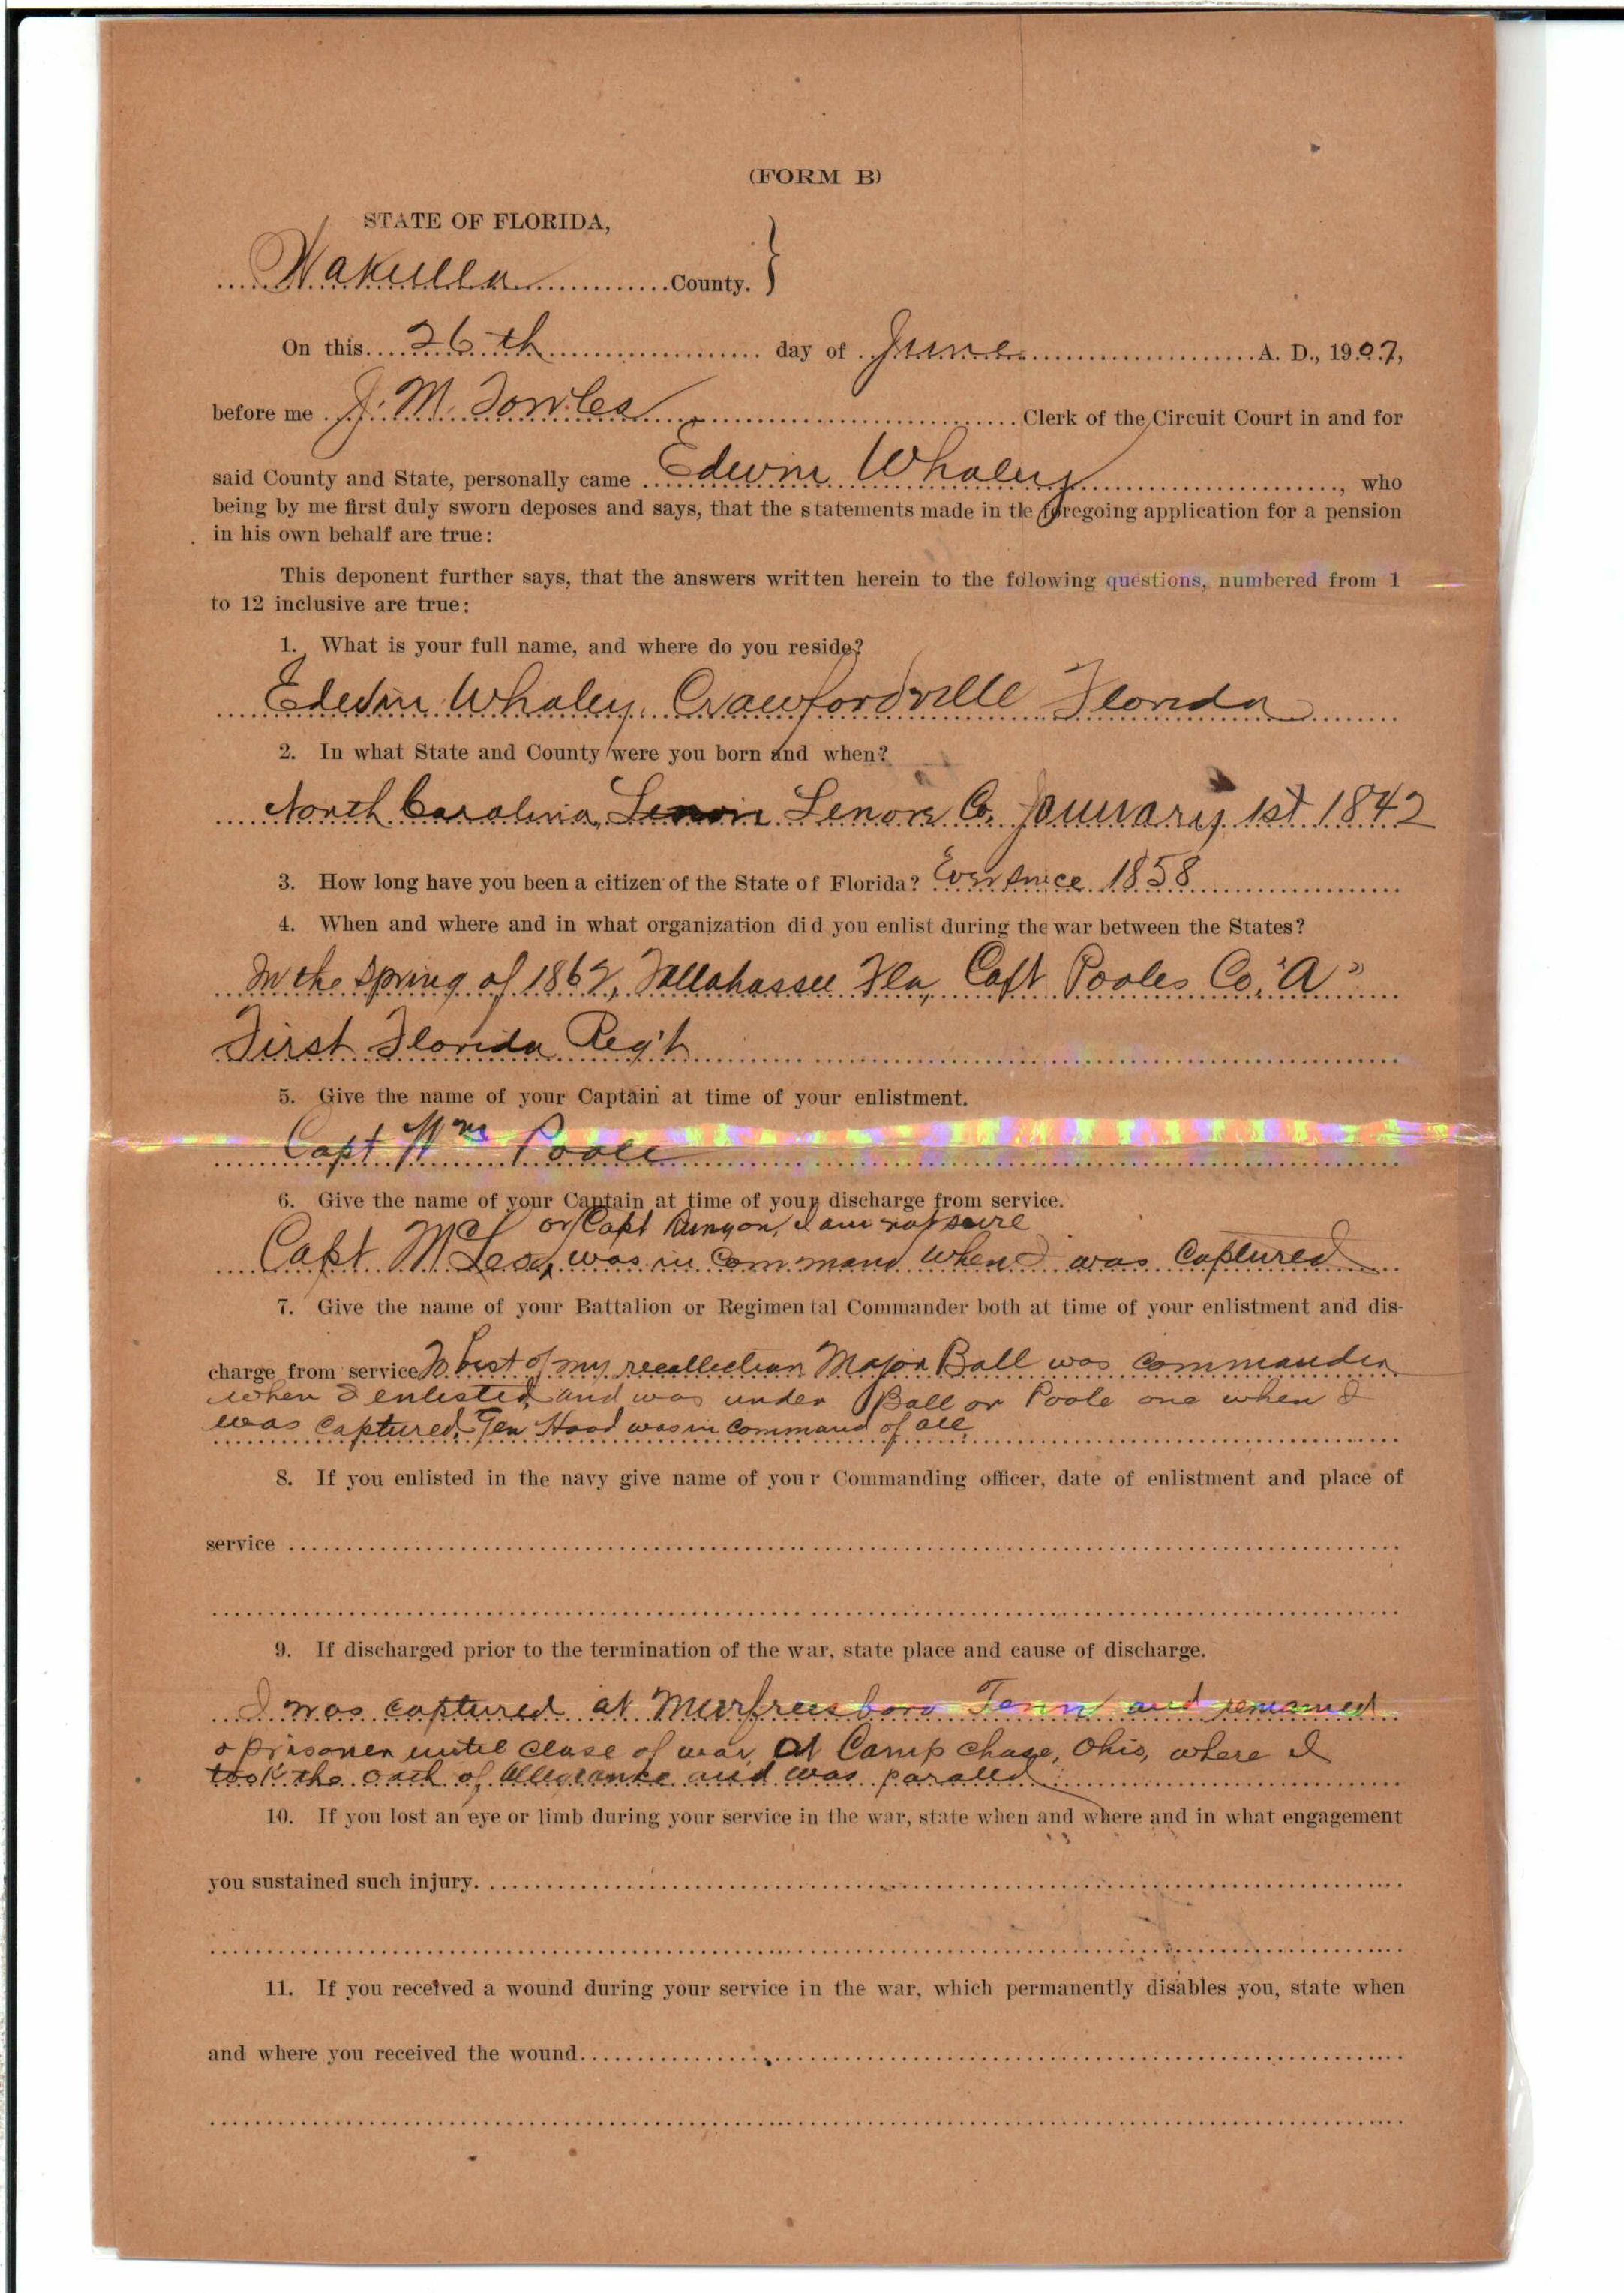 (FORM B)
STATE OF FLORIDA,
Wakulla County.
On this 26th day of June A. D., 1907,
before me J. M. Towles Clerk of the Circuit Court in and for
said County and State, personally came Edwin Whaley, who
being by me first duly sworn deposes and says, that the statements made in tle foregoing application for a pension
in his own behalf are true:
This deponent further says, that the answers written herein to the folowing questions, numbered from 1
to 12 inclusive are true:
1. What is your full name, and where do you reside?
Edwin Whaley, Crawfordville Florida
2. In what State and County were you born and when?
North Carolina, Lenoir Co. January 1st 1842
3. How long have you been a citizen of the State of Florida? Ever since 1858
4. When and where and in what organization did you enlist during the war between the States?
In the spring of 1862, Tallahassee Fla, Capt Pooles Co. "A"
First Florida Reg't
5. Give the name of your Captain at time of your enlistment.
Capt Wm Poole
6. Give the name of your Captain at time of your discharge from service.
or Capt Runyon, I am not sure
Capt McLeod, was in command when I was captured
7. Give the name of your Battalion or Regimental Commander both at time of your enlistment and dis-
charge from service To best of my recollection Major Ball was commander
when I enlisted and was under Ball or Poole one when I
was captured. Gen Hood was in command of all
8. If you enlisted in the navy give name of your Commanding officer, date of enlistment and place of
service
9. If discharged prior to the termination of the war, state place and cause of discharge.
I was captured at Murfreesboro Tenn and remained
a prisoner until close of war, at Camp Chase, Ohio, where I
took the oath of allegiance and was paroled
10. If you lost an eye or limb during your service in the war, state when and where and in what engagement
you sustained such injury.
11. If you received a wound during your service in the war, which permanently disables you, state when
and where you received the wound.